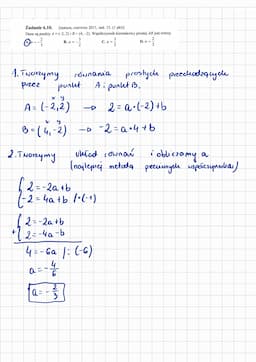 Zadanie 6.10. (matura, czerwiec 2015, zad. 15. (1 pkt))
Dane są punkty A = (-2, 2) i B = (4, -2). Współczynnik kierunkowy prostej AB jest równy
A. a = -2/3 B. C. D.
1. Tworzymy równania prostych przechodzących
przez punkt A i punkt B.
x y
A = (-2,2) → 2 = a·(-2)+b
x y
B = (4,-2) → -2 = a·4+b
2. Tworzymy układ równań i obliczamy a
(najlepiej metodą przeciwnych współczynników)
{ 2 = -2a+b
-2 = 4a+b /·(-1)
{ 2 = -2a+b
+ 2 = -4a-b
4 = -6a /:(-6)
a = -4/6
a = -2/3